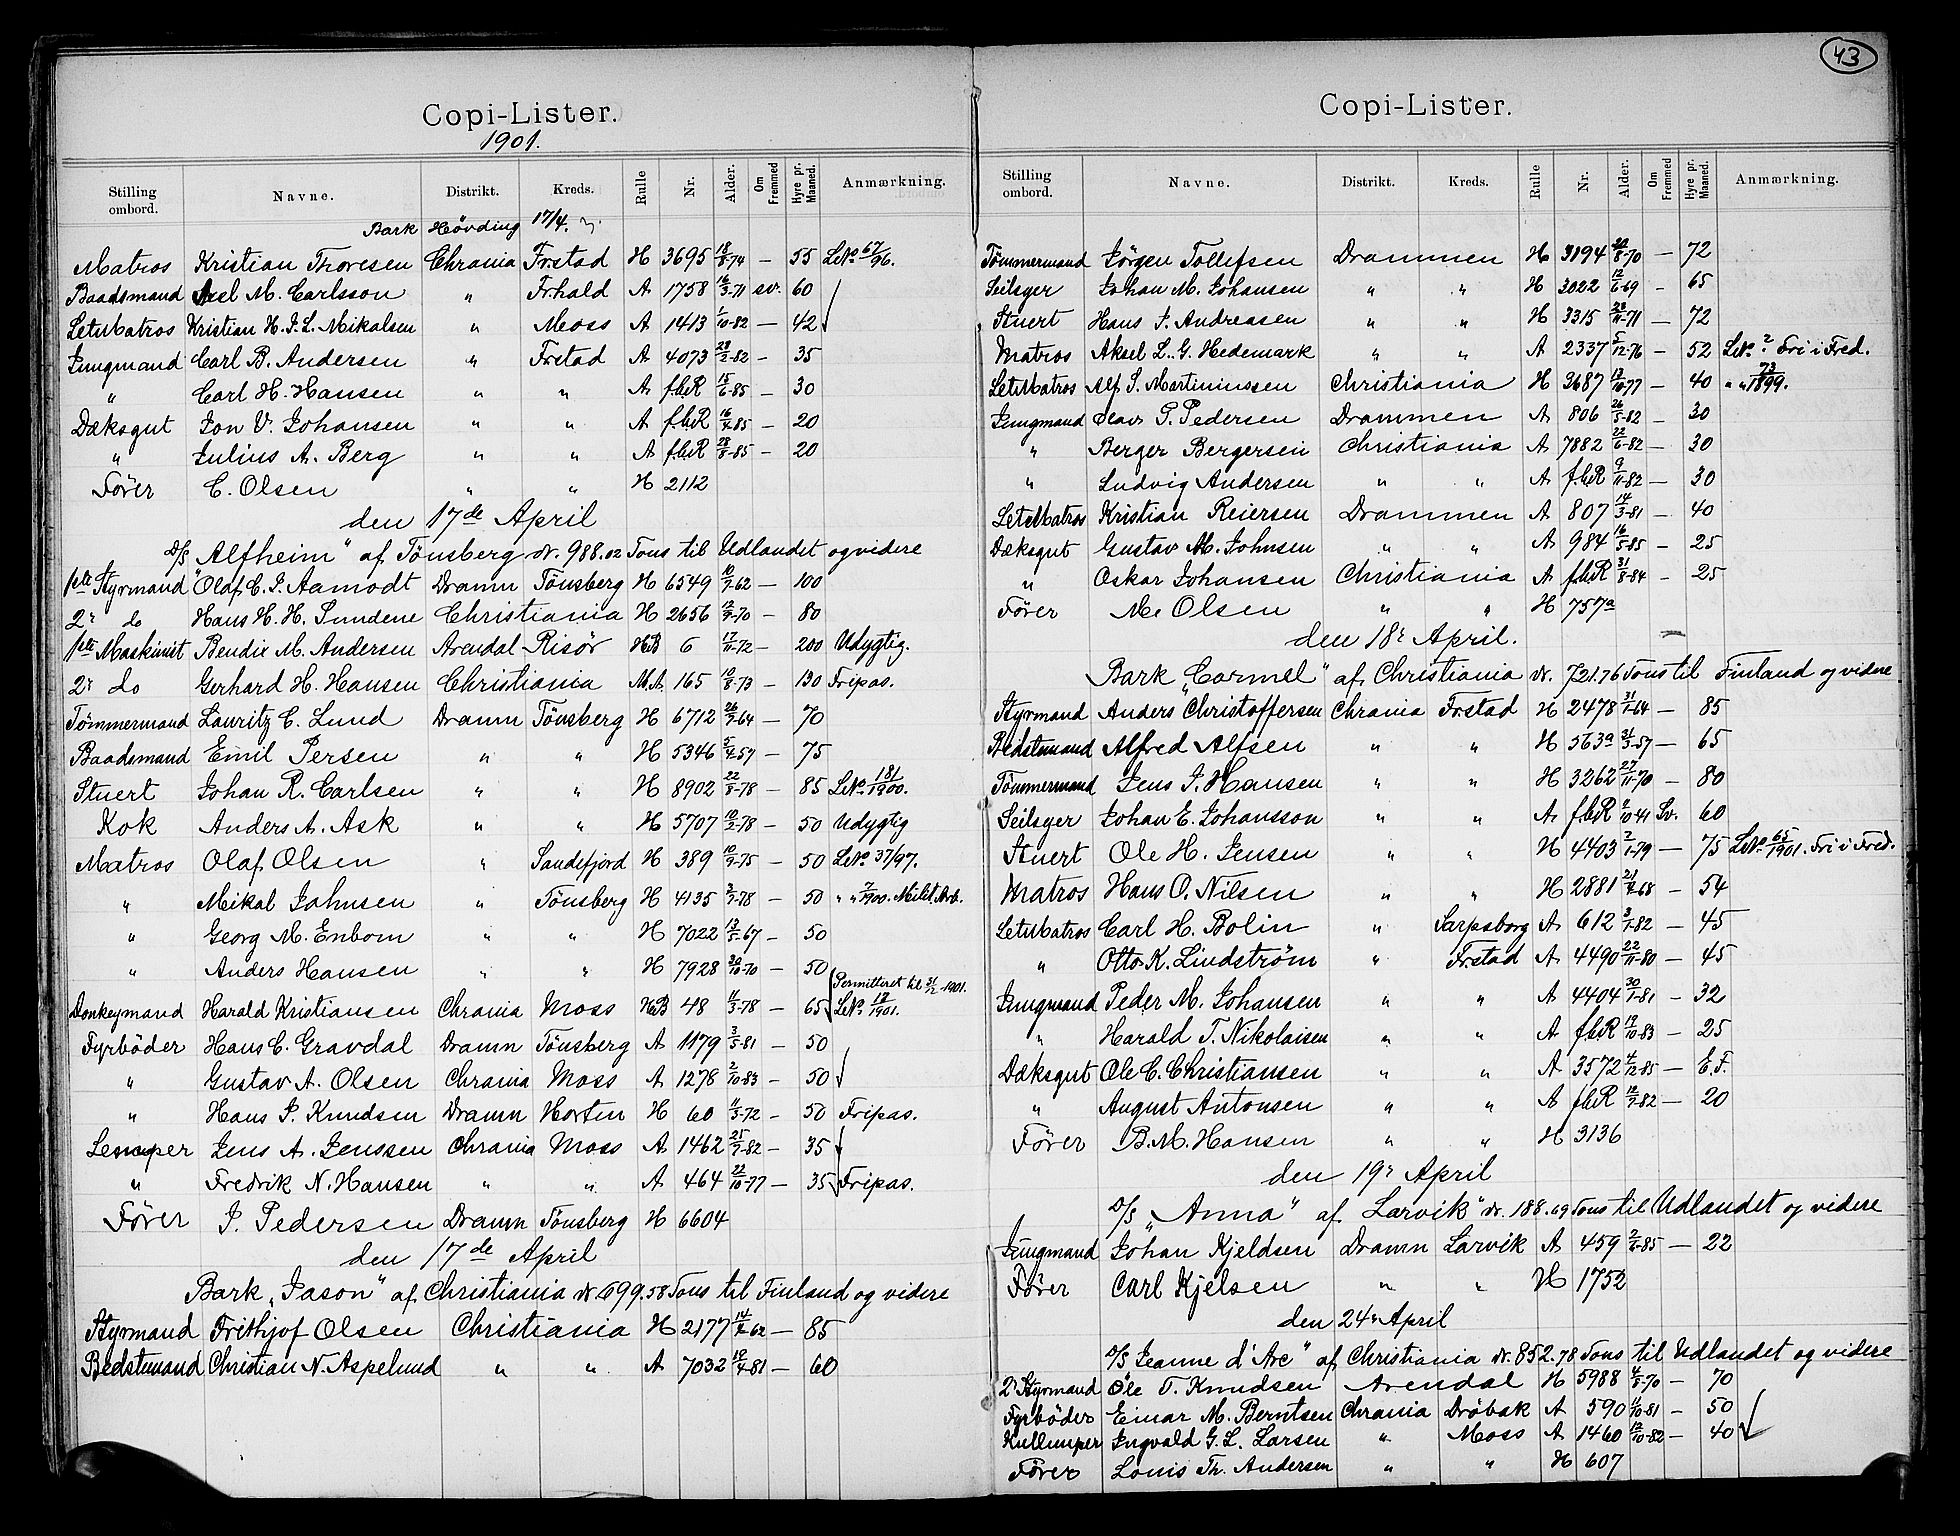 43
Copi-Lister.
1901.
Stilling ombord. Navne. Distrikt. Kreds. Rulle Nr. Alder. Om Fremmed Hyre pr. Maaned. Anmærkning.
Bark Høvding 17/4.
Matros Kristian Thoresen Chrania Frstad H 3695 18/8-74 — 55 LeNo 67/96.
Baadsmand Axel M. Carlsson " Frhald A 1758 16/3-71 sv. 60
LetMatros Kristian H. J. L. Mikalsen " Moss A 1413 1/10-82 — 42
Jungmand Carl B. Andersen " Frstad A 4073 28/2-82 — 35
" Carl H. Hansen " " A fbR 15/6-85 — 30
Dæksgut Jon V. Johansen " " A fbR 16/4-85 — 20
" Julius A. Berg " " A fbR 28/8-85 — 20
Fører C. Olsen " " H 2112
den 17de April
D/S "Alfheim" af Tönsberg dr. 988.02 Tons til Udlandet og videre
1ste Styrmand Olaf C. J. Aamodt Dramn Tönsberg H 6549 10/7-62 — 100
2' do Hans H. H. Sundene Christiania H 2656 12/9-70 — 80
1ste Maskinist Bendix M. Andersen Arendal Risör HB 6 17/11-72 — 200 Udygtig.
2' do Gerhard H. Hansen Christiania MA 165 10/8-73 — 130 Fripas.
Tömmermand Lauritz C. Lund Dramn Tönsberg H 6712 26/7-64 — 70
Baadsmand Emil Persen " " H 5346 5/4-57 — 75
Stuert Johan R. Carlsen " " H 8902 22/8-78 — 85 LeNo 181/1900.
Kok Anders A. Ask " " H 5707 10/2-78 — 50 Udygtig
Matros Olaf Olsen " Sandefjord H 389 10/9-75 — 50 LeNo 37/97.
" Mikal Johnsen " Tönsberg H 4135 2/7-78 — 50 " " 7/900. Milit. Arb.
" Georg M. Enbom " " H 7022 13/5-67 — 50
" Anders Hansen " " H 7928 30/10-70 — 50
Permitteret til 31/12 1901.
Donkeymand Harald Kristiansen Chrania Moss HB 48 11/3-78 — 65 LeNo 18/1901.
Fyrböder Hans C. Gravdal Dramn Tönsberg A 1179 3/5-81 — 50
" Gustav A. Olsen Chrania Moss A 1278 2/10-83 — 50
" Hans J. Knudsen Dramn Horten H 60 11/3-72 — 50 Fripas.
Lemper Jens A. Jenssen Chrania Moss A 1462 25/7-82 — 35
" Fredrik N. Hansen " " A 464 22/10-77 — 35 Fripas.
Fører J. Pedersen Dramn Tönsberg H 6604
den 17de April
Bark "Jason" af Christiania dr 699.58 Tons til Finland og videre
Styrmand Frithjof Olsen Christiania H 2177 14/2-62 — 85
Bedstemand Christian N. Aspelund " " A 7032 19/4-81 — 60
Copi-Lister.
Stilling ombord. Navne. Distrikt. Kreds. Rulle Nr. Alder. Om Fremmed Hyre pr. Maaned. Anmærkning.
Tömmermand Jörgen Tollefsen Drammen H 3194 20/8-70 — 72
Seilsyer Johan M. Johansen " " H 3022 12/6-69 — 65
Stuert Hans J. Andreasen " " H 3315 28/11-71 — 72
Matros Aksel L. G. Hedemark " " A 2337 5/12-76 — 52 LeNo ? Fri i Fred.
LetMatros Alf S. Martiniussen Christiania H 3687 13/10-77 — 40 " " 73/1899.
Jungmand Olav G. Pedersen Drammen A 806 26/5-82 — 30
" Berger Bergersen Christiania A 7882 22/6-82 — 30
" Ludvig Andersen " " A fbR 9/11-82 — 30
LetMatros Kristian Reiersen Drammen A 807 14/3-81 — 40
Dæksgut Gustav M. Johnsen " " A 984 16/5-85 — 25
" Oskar Johansen Christiania A fbR 31/8-84 — 25
Fører M. Olsen " " H 757a
den 18' April.
Bark "Carmel" af Christiania dr. 721.76 Tons til Finland og videre
Styrmand Anders Christoffersen Chrania Frstad H 2478 31/1-64 — 85
Bedstemand Alfred Alfsen " " H 563a 31/3-57 — 65
Tömmermand Jens J. Hansen " " H 3262 27/11-70 — 80
Seilsyer Johan E. Johansson " " A fbR 9/10 41 Sv. 60
Stuert Ole H. Jensen " " H 4403 2/1-79 — 75 LeNo 65/1901. Fri i Fred.
Matros Hans O. Nilsen " " H 2881 21/4-68 — 54
LetMatros Carl H. Bolin " Sarpsborg A 612 3/1-82 — 45
" Otto K. Lindström " Frstad A 4490 22/11-80 — 45
Jungmand Peder M. Johansen " " A 4404 30/1-81 — 32
" Harald T. Nikolaisen " " A fbR 19/10-83 — 25
Dæksgut Ole C. Christiansen " " A 3572 4/12-85 — E.F.
" August Antonsen " " A fbR 12/7-82 — 20
Fører B. M. Hansen " " H 3136
den 19' April
D/S "Anna" af Larvik dr. 188.69 Tons til Udlandet og videre
Jungmand Johan Kjeldsen Dramn Larvik A 459 2/6-85 — 22
Fører Carl Kjelsen " " H 1752
den 24' April
D/S Jeanne d'Arc" af Christiania dr. 852.78 Tons til Udlandet og videre
2' Styrmand Ole T. Knudsen Arendal H 5988 4/8-70 — 70
Fyrböder Einar M. Berntsen Chrania Dröbak A 590 1/10-81 — 50
Kullemper Ingvald G. L. Larsen " Moss A 1460 12/10-82 — 40
Fører Louis Th. Andersen " " H 607